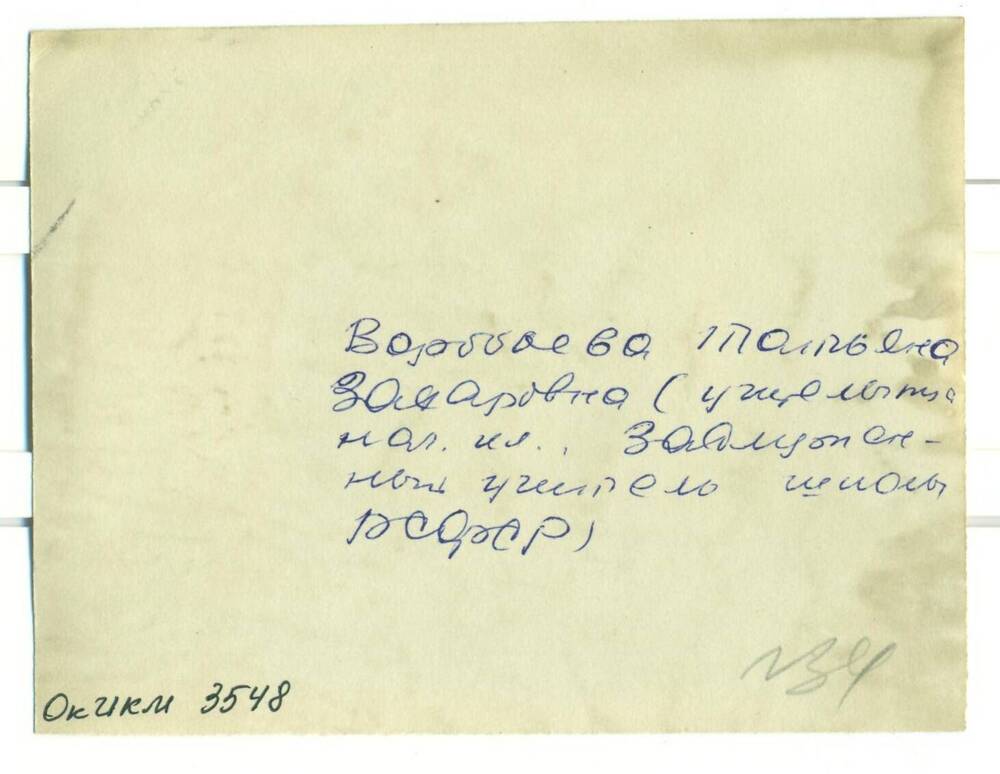 Воробьева Татьяна
Захаровна (учительница
нач. кл., Заслужен-
ный учитель школы
РСФСР)
ОКИКМ 3548